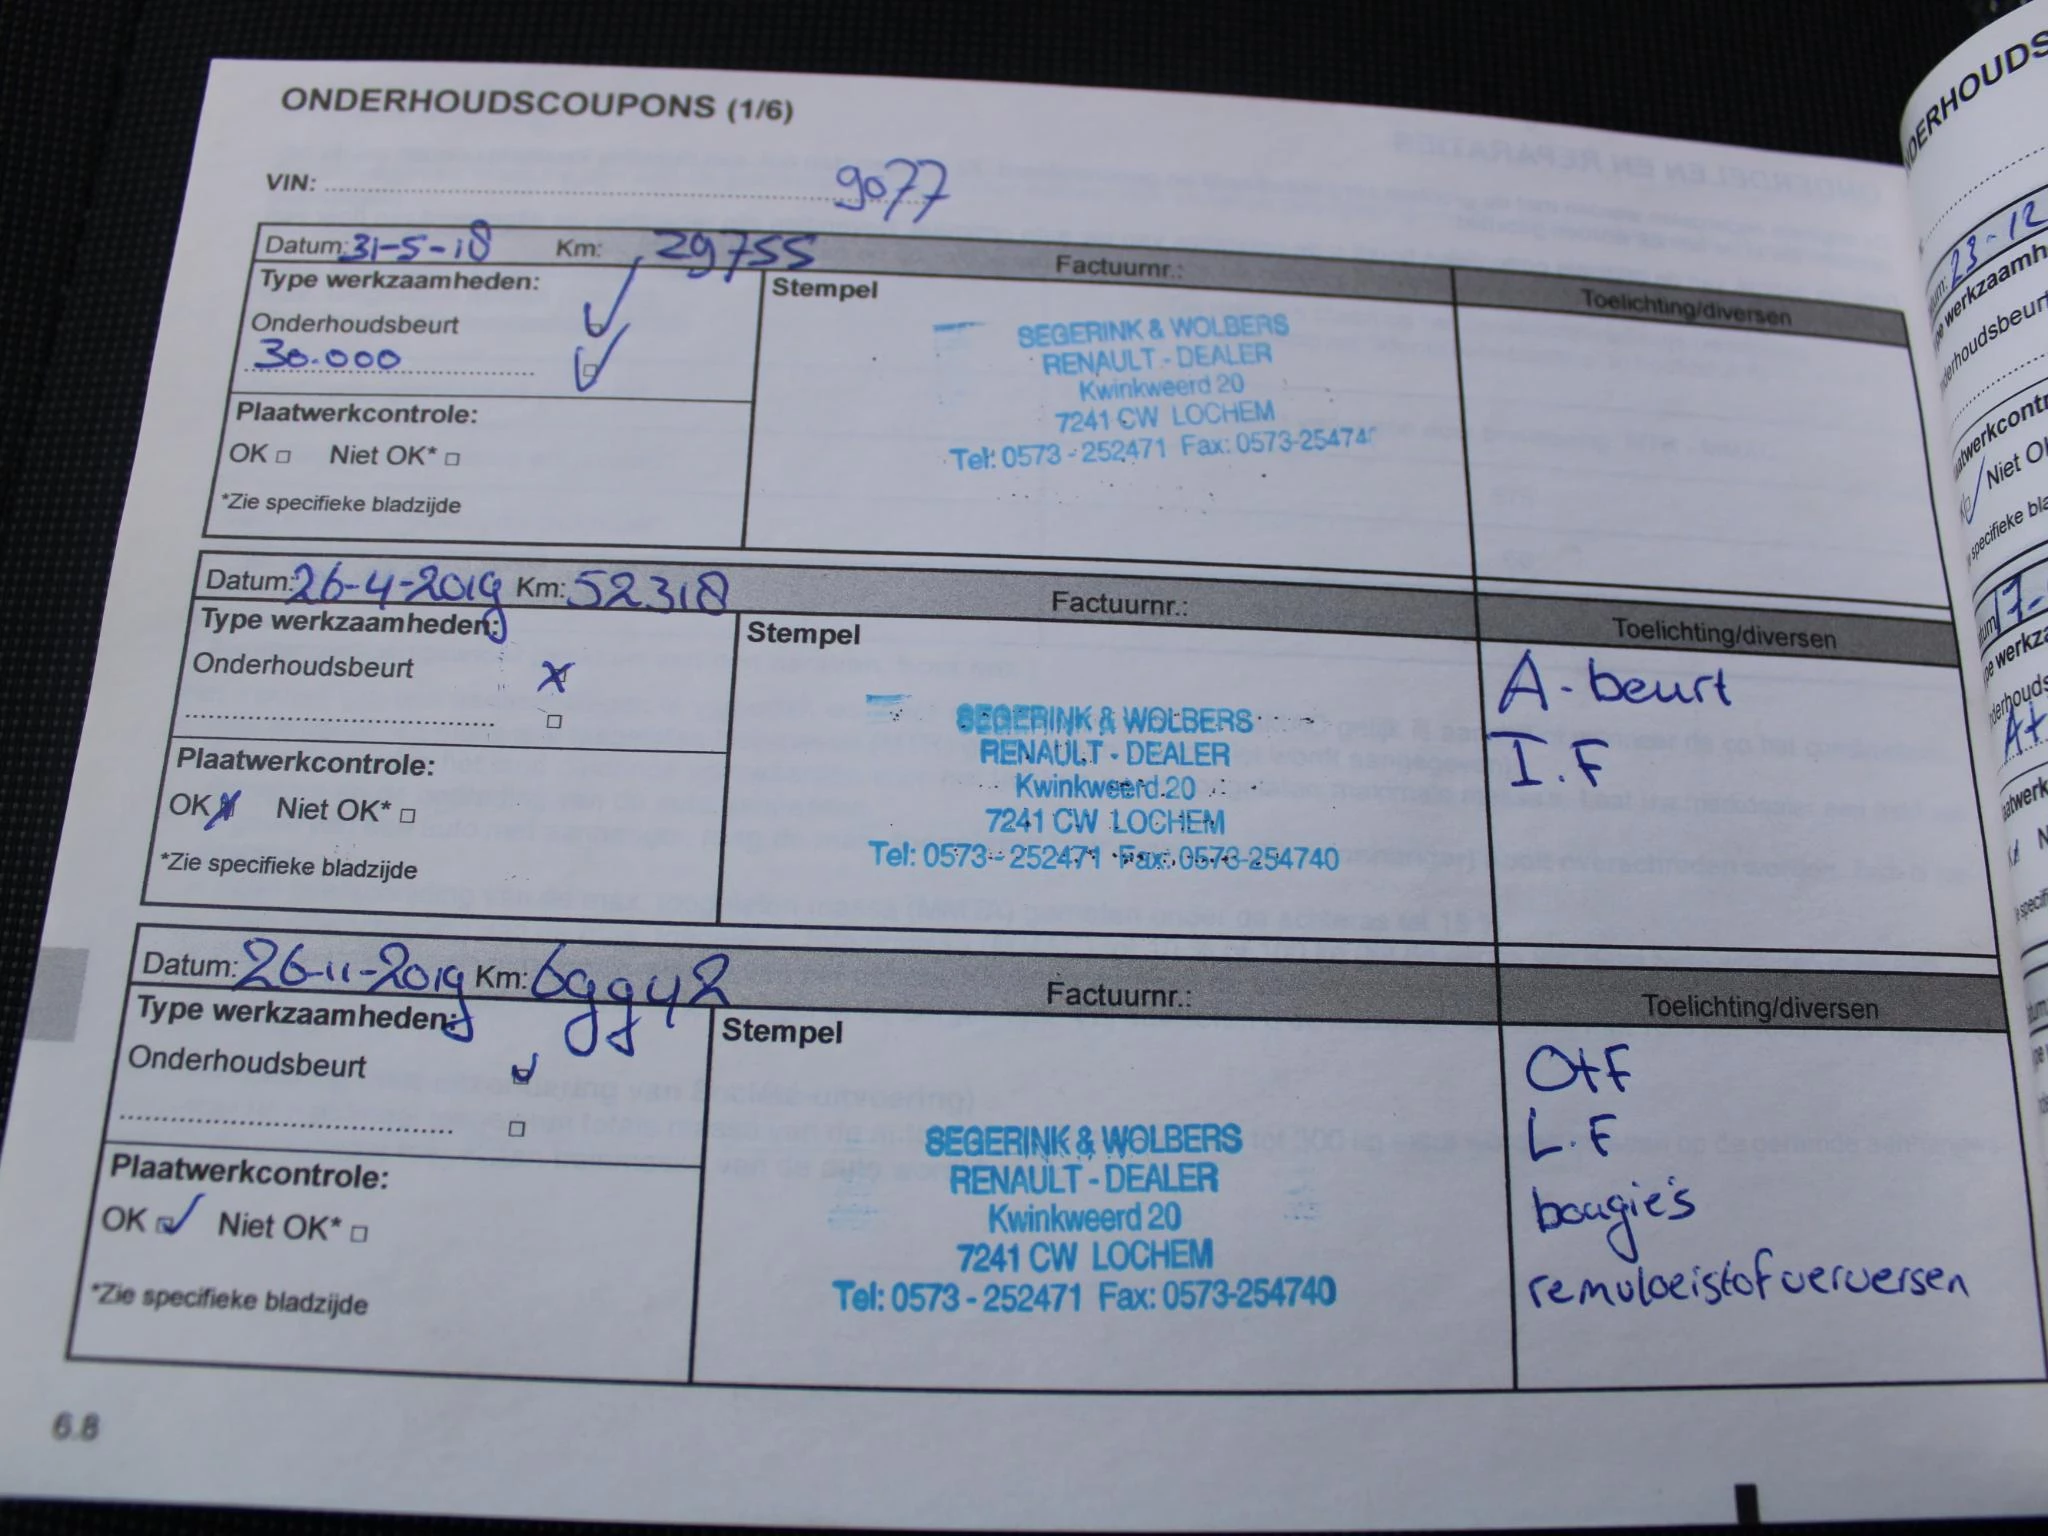 ONDERHOUDSCOUPONS (1/6)
VIN: 9077
Datum: 31-5-18 Km: 29755 Factuurnr.:
Type werkzaamheden:
Stempel
Toelichting/diversen
Onderhoudsbeurt
30.000
SEGERINK & WOLBERS
RENAULT - DEALER
Kwinkweerd 20
7241 CW LOCHEM
Tel: 0573 - 252471 Fax: 0573-25474
Plaatwerkcontrole:
OK Niet OK*
*Zie specifieke bladzijde
Datum: 26-4-2019 Km: 52318 Factuurnr.:
Type werkzaamheden:
Stempel
Toelichting/diversen
Onderhoudsbeurt
A-beurt
I.F
SEGERINK & WOLBERS
RENAULT - DEALER
Kwinkweerd 20
7241 CW LOCHEM
Tel: 0573 - 252471 Fax: 0573-254740
Plaatwerkcontrole:
OK Niet OK*
*Zie specifieke bladzijde
Datum: 26-11-2019 Km: 69942 Factuurnr.:
Type werkzaamheden:
Stempel
Toelichting/diversen
Onderhoudsbeurt
O+F
L.F
bougie's
remvloeistof verversen
SEGERINK & WOLBERS
RENAULT - DEALER
Kwinkweerd 20
7241 CW LOCHEM
Tel: 0573 - 252471 Fax: 0573-254740
Plaatwerkcontrole:
OK Niet OK*
*Zie specifieke bladzijde
6.8
23-12
Niet
17-
A+